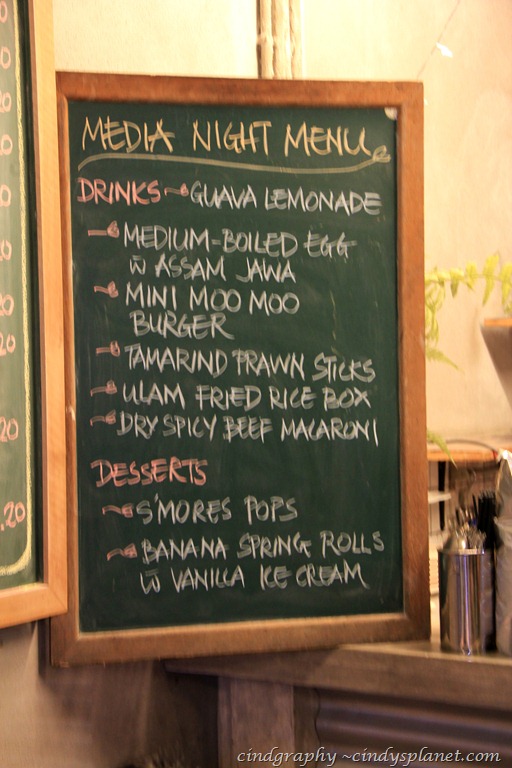 MEDIA NIGHT MENU
DRINKS GUAVA LEMONADE
MEDIUM-BOILED EGG
w̄ ASSAM JAWA
MINI MOO MOO
BURGER
TAMARIND PRAWN STICKS
ULAM FRIED RICE BOX
DRY SPICY BEEF MACARONI
DESSERTS
S'MORES POPS
BANANA SPRING ROLLS
w̄ VANILLA ICE CREAM
.20
cindgraphy ~cindysplanet.com